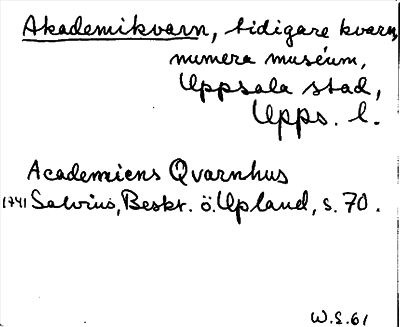 Akademikvarn, tidigare kvarn,
numera muséum,
Uppsala stad,
Upps. l.
Academiens Qvarnhus
1741 Salvius, Beskr. ö. Upland, s. 70.
W.S. 61